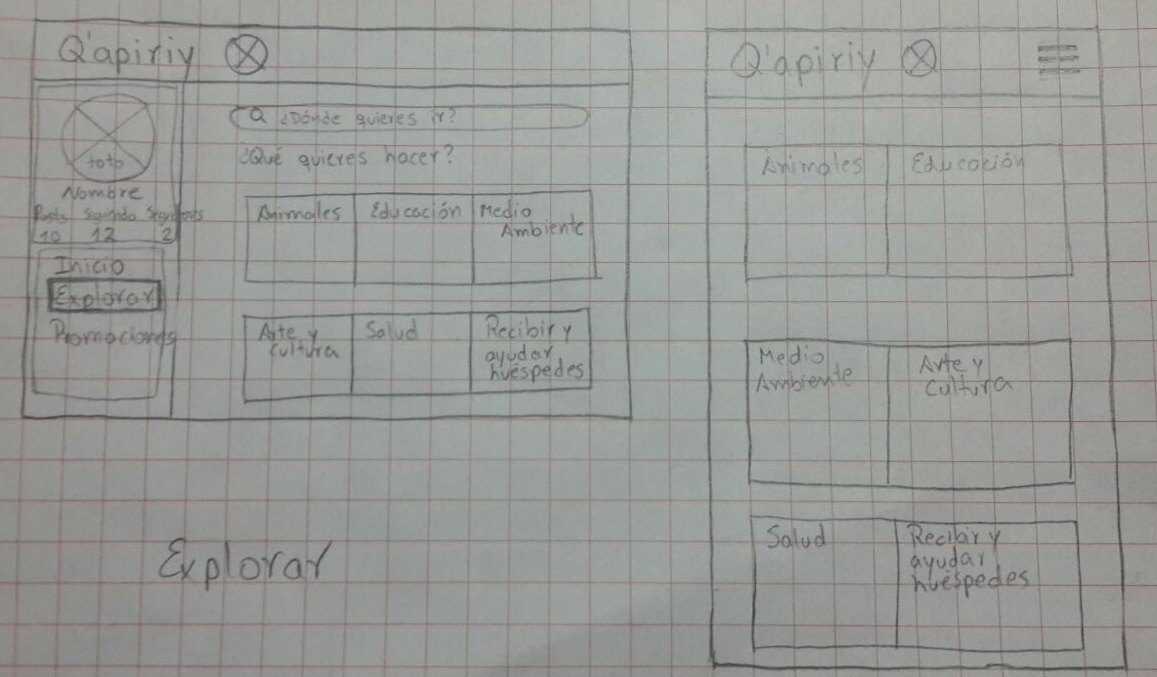 Q'apiriy
foto
Nombre
Posts Siguiendo
10 12 2
Inicio
Explorar
Promociones
¿Dónde quieres ir?
¿Qué quieres hacer?
Animales Educación Medio
Ambiente
Arte y Salud Recibir y
Cultura ayudar
huéspedes
Explorar
Q'apiriy
Animales Educación
Medio Arte y
Ambiente Cultura
Salud Recibir y
ayudar
huéspedes